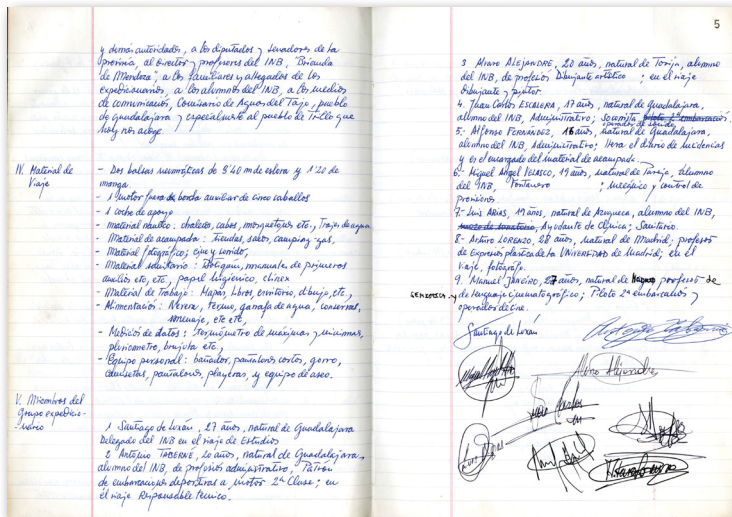 y demás autoridades, a los diputados y senadores de la
provincia, al Director y profesores del INB, "Brianda
de Mendoza", a los familiares y allegados de los
expedicionarios, a los alumnos del INB, a los medios
de comunicación, Comisario de Aguas del Tajo, pueblo
de Guadalajara y especialmente al pueblo de Trillo que
hoy nos acoge.
IV. Material de
Viaje
- Dos balsas neumáticas de 3'40 m de eslora y 1'20 de
manga.
- 1 motor fuera de borda auxiliar de cinco caballos
- 1 coche de apoyo
- material náutico: chalecos, cabos, mosquetones etc., Trajes de agua
- Material de acampada: Tiendas, saco, camping-gas,
- Material fotográfico; cine y sonido,
- Material sanitario: Botiquín, manual de primeros
auxilios etc, etc, papel higiénico, clinex
- Material de Trabajo: Mapas, libros, escritorio, dibujo, etc.,
- Alimentación: Nevera, termo, garrafa de agua, conservas,
menaje, etc etc,
- Medición de datos: termómetro de máximas y mínimas,
pluviometro, brujula etc.,
- Equipo personal: bañador, pantalones cortos, gorro,
camisetas, pantalones, playeras, y equipo de aseo.
V. Miembros del
grupo expedicio-
nario
1 Santiago de Luxán, 27 años, natural de Guadalajara
Delegado del INB en el viaje de Estudios
2 Antonio TABERNÉ, 20 años, natural de Guadalajara,
alumno del INB, de profesión administrativo, Patrón
de embarcaciones deportivas a motor 2ª Clase; en
el viaje Responsable técnico.
5
3 Alvaro ALEJANDRE, 20 años, natural de Torija, alumno
del INB, de profesión Dibujante artístico; en el viaje
Dibujante y pintor
4. Juan Carlos ESCALERA, 17 años, natural de Guadalajara,
alumno del INB, Administrativo; sonomista piloto 2ª embarcación
operador de sonido
5. Alfonso FERNÁNDEZ, 18 años, natural de Guadalajara,
alumno del INB, Administrativo; lleva el diario de incidencias
y es el encargado del material de acampada.
6- Miguel Angel VELASCO, 19 años, natural de Torija, alumno
del INB, Fontanero; mecánico y control de
provisiones
7- Luis ARIAS, 19 años, natural de Azuqueca, alumno del INB,
Ayudante de Clínica; Sanitario.
8- Arturo LORENZO, 28 años, natural de Madrid, profesor
de Expresión plástica de la UNIVERSIDAD de Madrid; en el
viaje, fotógrafo.
9. Manuel JANEIRO, 27 años, natural de profesor de
de lenguaje cinematográfico; Piloto 2ª embarcación y
operador de cine.
Santiago de Luxán
Alvaro Alejandre
Juan Carlos
Luis Arias